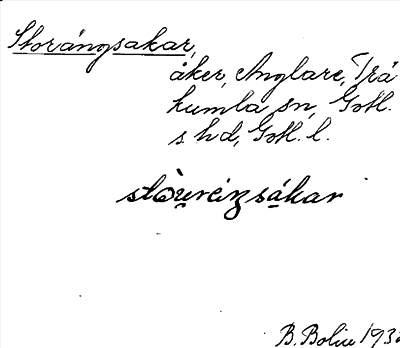 Storängsakar,
åker, Anglare, Trä
kumla sn, Gotl.
s hd, Gotl. l.
stòu̯reiŋsákar
B. Bolin 193